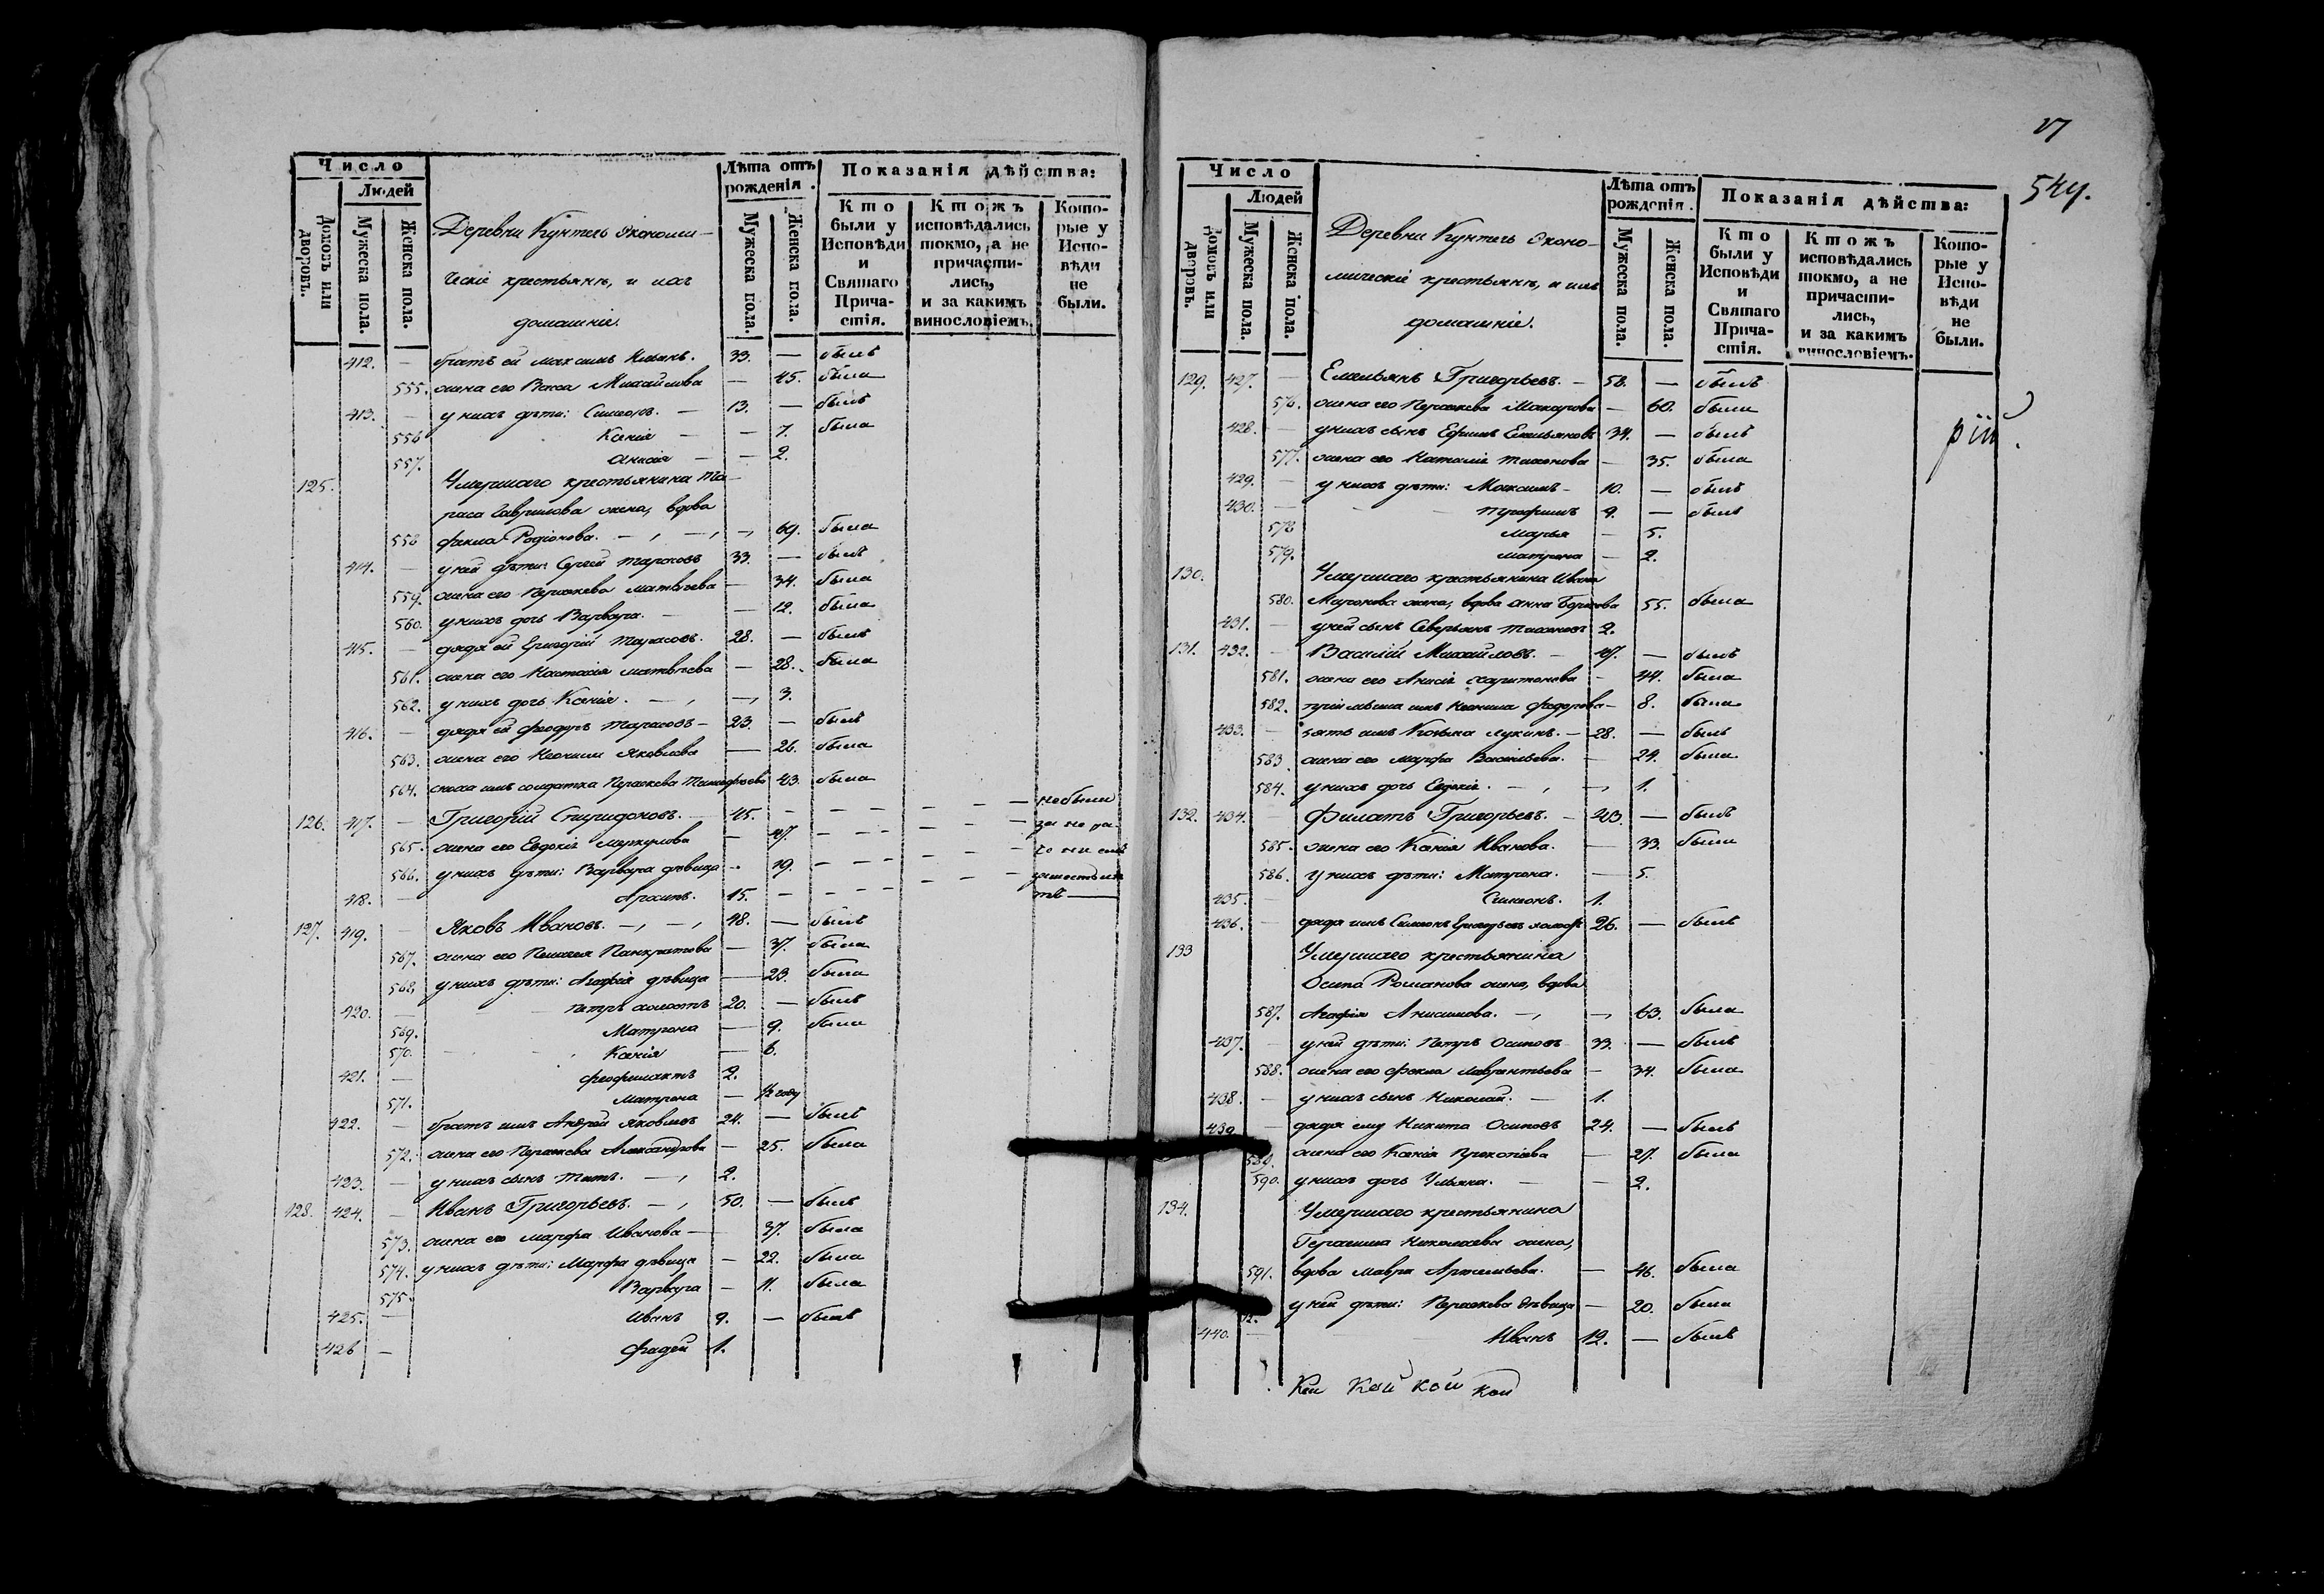 Число
Людей
Домовъ или дворовъ.
Мужеска пола.
Женска пола.
Деревни Кунтечь экономи-
ческіе крестьяне, и ихъ
домашніе.
Лѣта отъ рожденія.
Мужеска пола.
Женска пола.
Показанія дѣйства:
Кто были у Исповѣди и Святаго Причастія.
Ктожъ исповѣдались токмо, а не причастились, и за какимъ винословіемъ.
Которые у Исповѣди не были.
412. — братъ ей Максимъ 33. — былъ
555. жена его Васса Михайлова — 45. была
413. — у нихъ дѣти: Симеонъ. — 13. — былъ
556 Ксенія — — 7. была
557. Анисія — — 2.
125. Умершаго крестьянина Та-
раса Гаврилова жена, вдова
558 Фекла Родіонова. — 69. была
414. — у ней дѣти: Сергей Тарасовъ 33. — былъ
559. жена его Параскева Матвѣева — 34. была
560. у нихъ дочь Варвара. — — 12. была
415. — дядя ей Григорій Тарасовъ. 28. — былъ
561. жена его Настасія Матвѣева — 28. была
562. у нихъ дочь Ксенія. — 3.
416. — дядя ей Феодоръ Тарасовъ — 23. — былъ
563. жена его Неонила Яковлева — 26. была
564. сноха имъ солдатка Параскева Тимофѣева 43. была
126. 417. — Григорій Спиридоновъ. 45. — небыли
565. жена его Евдокія — 47. — за не ра-
566. у нихъ дѣти: Варвара дѣвица — 19. —
418. — Архипъ. 15. —
127. 419. — Яковъ Ивановъ. 48. — былъ
567. жена его Пелагея Панкратова — 37. была
568. у нихъ дѣти: Агафія дѣвица — 23. была
420. — Петръ холостъ 20. — былъ
569. Матрона — 9. была
570. Ксенія — 6.
421. — Феофилактъ 2.
571. Матрона — ½ году
422. — братъ имъ Андрей Яковлевъ 24. — былъ
572. жена его Параскева Александрова — 25. была
423. — у нихъ сынъ Титъ. — 2.
128. 424. — Иванъ Григорьевъ. — 50. — былъ
573. жена его Марфа Иванова — 37. была
574. у нихъ дѣти: Марфа дѣвица — 22. была
575. Варвара — 11. была
425. — Иванъ 9. — былъ
426 — Фадей 1.
544.
Число
Людей
Домовъ или дворовъ.
Мужеска пола.
Женска пола.
Деревни Кунтечь эконо-
мическіе крестьяне, и ихъ
домашніе.
Лѣта отъ рожденія.
Мужеска пола.
Женска пола.
Показанія дѣйства:
Кто были у Исповѣди и Святаго Причастія.
Ктожъ исповѣдались токмо, а не причастились, и за какимъ винословіемъ.
Которые у Исповѣди не были.
129. 427. — Емельянъ Григорьевъ. — 58. — былъ
576. жена его Параскева Макарова — 60. была
428. — у нихъ сынъ Ефимъ Емельяновъ 34. — былъ
577. жена его Наталія Тихонова — 35. была
рій.
429. — у нихъ дѣти: Максимъ — 10. — былъ
430. — Трофимъ 9. — былъ
578 Марья — 5.
579. Матрона — 2.
130. Умершаго крестьянина Ивана
580. жена, вдова Анна Борисова 55. была
431. — у ней сынъ Северьянъ 2.
131. 432. — Василій Михайловъ. — 47. — былъ
581. жена его Анисія Харитонова — 44. была
582. Неонила Федорова — 8. была
433. — зять имъ Козьма Лукинъ. — 28. — былъ
583. жена его Марфа Васильева. — 24. была
584. у нихъ дочь Евдокія. — 1.
132. 434. — Филатъ Григорьевъ. — 43. — былъ
585. жена его Ксенія Иванова. — 33. была
586. у нихъ дѣти: Матрона. — 5.
435. — Симеонъ. 1.
436. — дядя имъ Симеонъ Григорьевъ холостъ 26. — былъ
133 Умершаго крестьянина
Осипа Романова жена, вдова
587. Агафія Анисимова. — 63. была
437. — у ней дѣти: Петръ Осиповъ 33. — былъ
588. жена его Фекла Лаврентьева — 34. была
438. — у нихъ сынъ Николай. — 1.
439 — дядя ему Никита Осиповъ 24. — былъ
589. жена его Ксенія Прокопіева — 27. была
590. у нихъ дочь Ульяна. — — 2.
134. Умершаго крестьянина
Герасима Николаева жена,
591. вдова Мавра Артемьева. — 46. была
у ней дѣти: Параскева дѣвица — 20. была
440. — Иванъ 12. — былъ
Кой Кой Кой